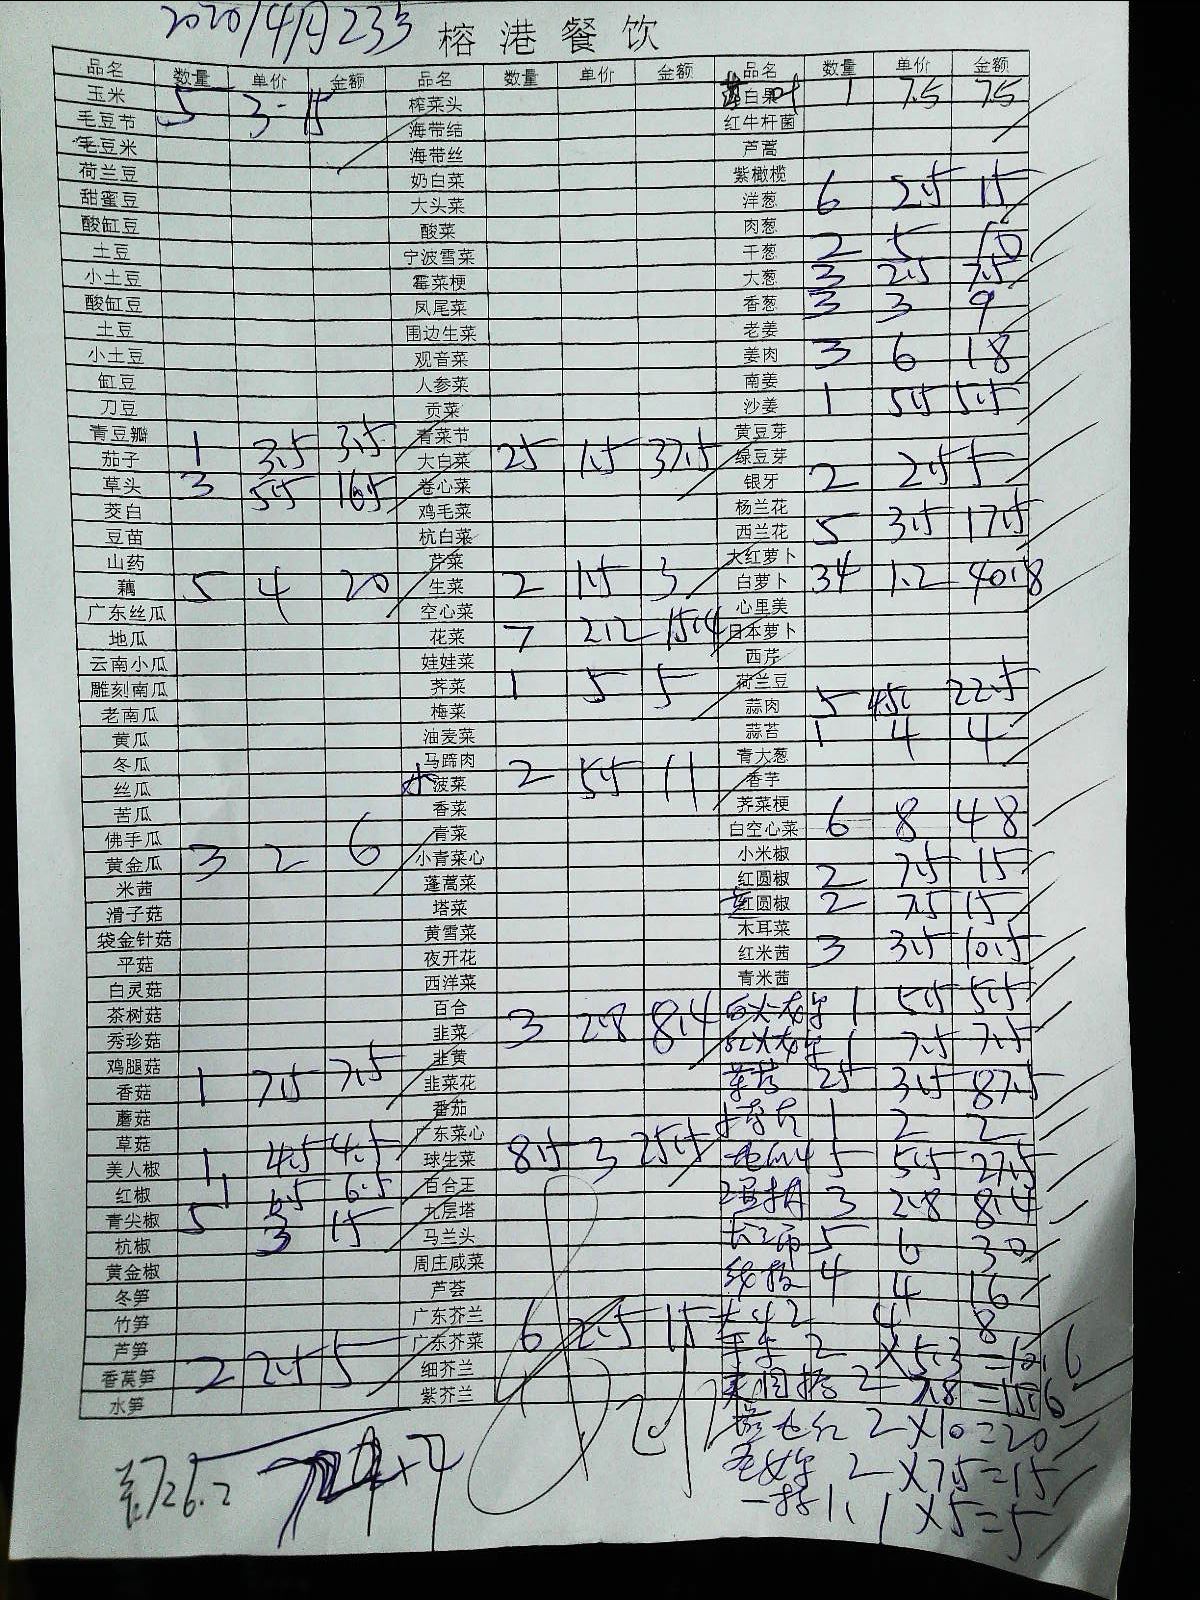 2020/4月23日
榕港餐饮
品名 数量 单价 金额 品名 数量 单价 金额 品名 数量 单价 金额
玉米 5 3 15 榨菜头 白果 叶 1 7.5 7.5
毛豆节 海带结 红牛杆菌
毛豆米 海带丝 芦蒿
荷兰豆 奶白菜 紫橄榄
甜蜜豆 大头菜 洋葱 6 2.5 15
酸缸豆 酸菜 肉葱
土豆 宁波雪菜 干葱 2 5 10
小土豆 霉菜梗 大葱 3 2.5 7.5
酸缸豆 凤尾菜 香葱 3 3 9
土豆 围边生菜 老姜
小土豆 观音菜 姜肉 3 6 18
缸豆 人参菜 南姜
刀豆 贡菜 沙姜 1 5.5 5.5
青豆瓣 青菜节 黄豆芽
茄子 1 3.5 3.5 大白菜 25 1.5 37.5 绿豆芽
草头 3 5.5 16.5 卷心菜 银牙 2 2.5 5
茭白 鸡毛菜 杨兰花
豆苗 杭白菜 西兰花 5 3.5 17.5
山药 芦菜 大红萝卜
藕 5 4 20 生菜 2 1.5 3 白萝卜 34 1.2 40.8
广东丝瓜 空心菜 心里美
地瓜 花菜 7 2.2 15.4 日本萝卜
云南小瓜 娃娃菜 西芹
雕刻南瓜 荠菜 1 5 5 荷兰豆
老南瓜 梅菜 蒜肉 5 4.5 22.5
黄瓜 油麦菜 蒜苔 1 4 4
冬瓜 马蹄肉 青大葱
丝瓜 小 菠菜 2 5.5 11 香芋
苦瓜 香菜 荠菜梗
佛手瓜 青菜 白空心菜 6 8 48
黄金瓜 3 2 6 小青菜心 小米椒
米茜 蓬蒿菜 红圆椒 2 7.5 15
滑子菇 塔菜 黄 红圆椒 2 7.5 15
袋金针菇 黄雪菜 木耳菜
平菇 夜开花 红米茜 3 3.5 10.5
白灵菇 西洋菜 青米茜
茶树菇 百合 白火龙果 1 5.5 5.5
秀珍菇 韭菜 3 2.8 8.4 红火龙果 1 7.5 7.5
鸡腿菇 韭黄
香菇 1 7.5 7.5 韭菜花 25 3.5 87.5
蘑菇 番茄 1 2 2
草菇 广东菜心
美人椒 1 4.5 4.5 球生菜 8.5 3 25.5 5 5.5 27.5
红椒 1 6.5 6.5 百合王 3 2.8 8.4
青尖椒 5 3 15 九层塔 5 6 30
杭椒 马兰头
黄金椒 周庄咸菜 线椒 4 4 16
冬笋 芦荟
竹笋 广东芥兰 6 2.5 15 2 4 8
芦笋 广东芥菜 2 ×5.3=10.6
香莴笋 2 2.5 5 细芥兰 2 7.8=15.6
水笋 紫芥兰
2×10=20
2×7.5=15
1×5=5
726.2